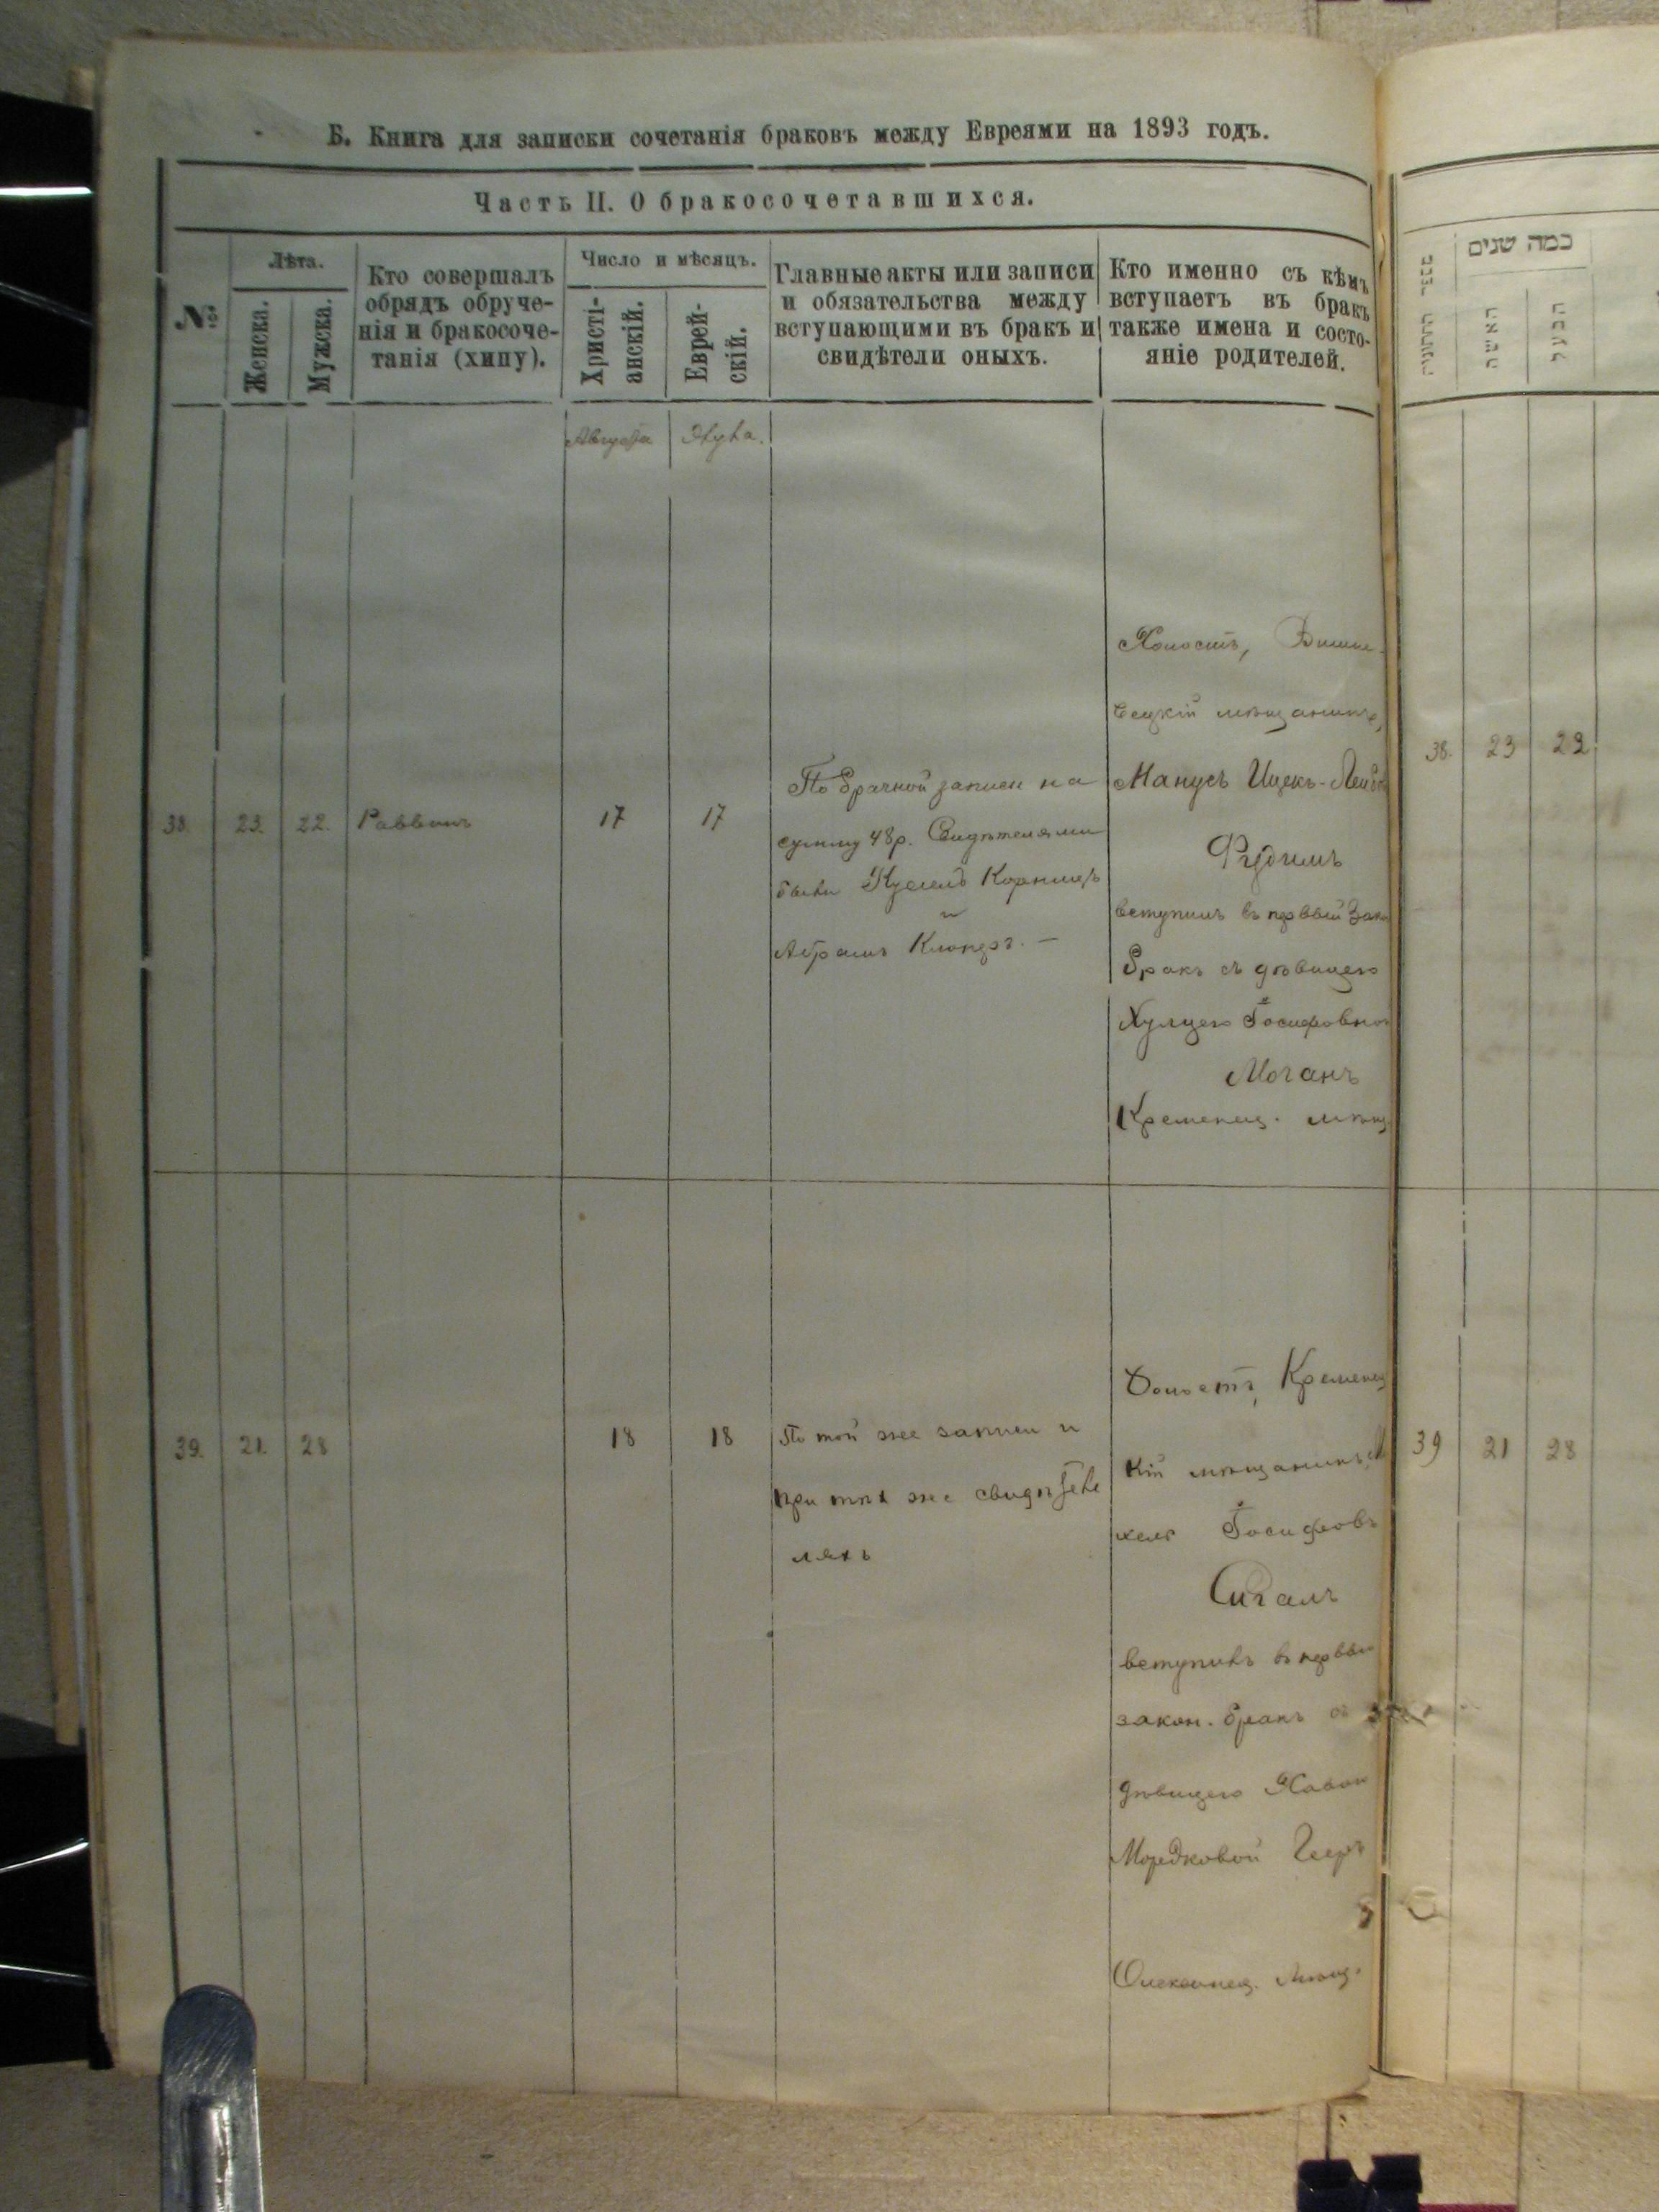 Б. Книга для записки сочетанія браковъ между Евреями на 1893 годъ.
Часть II. О бракосочетавшихся.
№
Лѣта.
Женска.
Мужска.
Кто совершалъ
обрядъ обруче-
нія и бракосоче-
танія (хипу).
Число и мѣсяцъ.
Христі-
анскій.
Еврей-
скій.
Главные акты или записи
и обязательства между
вступающими въ бракъ и
свидѣтели оныхъ.
Кто именно съ кѣмъ
вступаетъ въ бракъ
также имена и состо-
яніе родителей.
Августа
Элула.
38.
23.
22.
Раввинъ
17
17
По брачной записи на
сумму 48 р. Свидѣтелями
были Кусель Корницъ
и
Абрамъ
Холостъ, Вишне-
вецкій мѣщанинъ,
Манусъ Ицекъ-Лейб
Фудимъ
вступилъ въ первый Зако
бракъ съ дѣвицею
Іосифовно
Моганъ
Кременец. мѣщ
39.
21.
28
18
18
По той же записи и
при тѣх же свидѣтеле
ляхъ
Холостъ, Кременец
кій мѣщанинъ, М
хель Іосифовъ
Сигалъ
вступилъ въ первый
закон. бракъ съ
дѣвицею Хавою
Мордковой Гееръ
Олексинец. Мѣщ.
מספר החתונות
כמה שנים
האשה
הבעל
38.
23
22
39
21
28